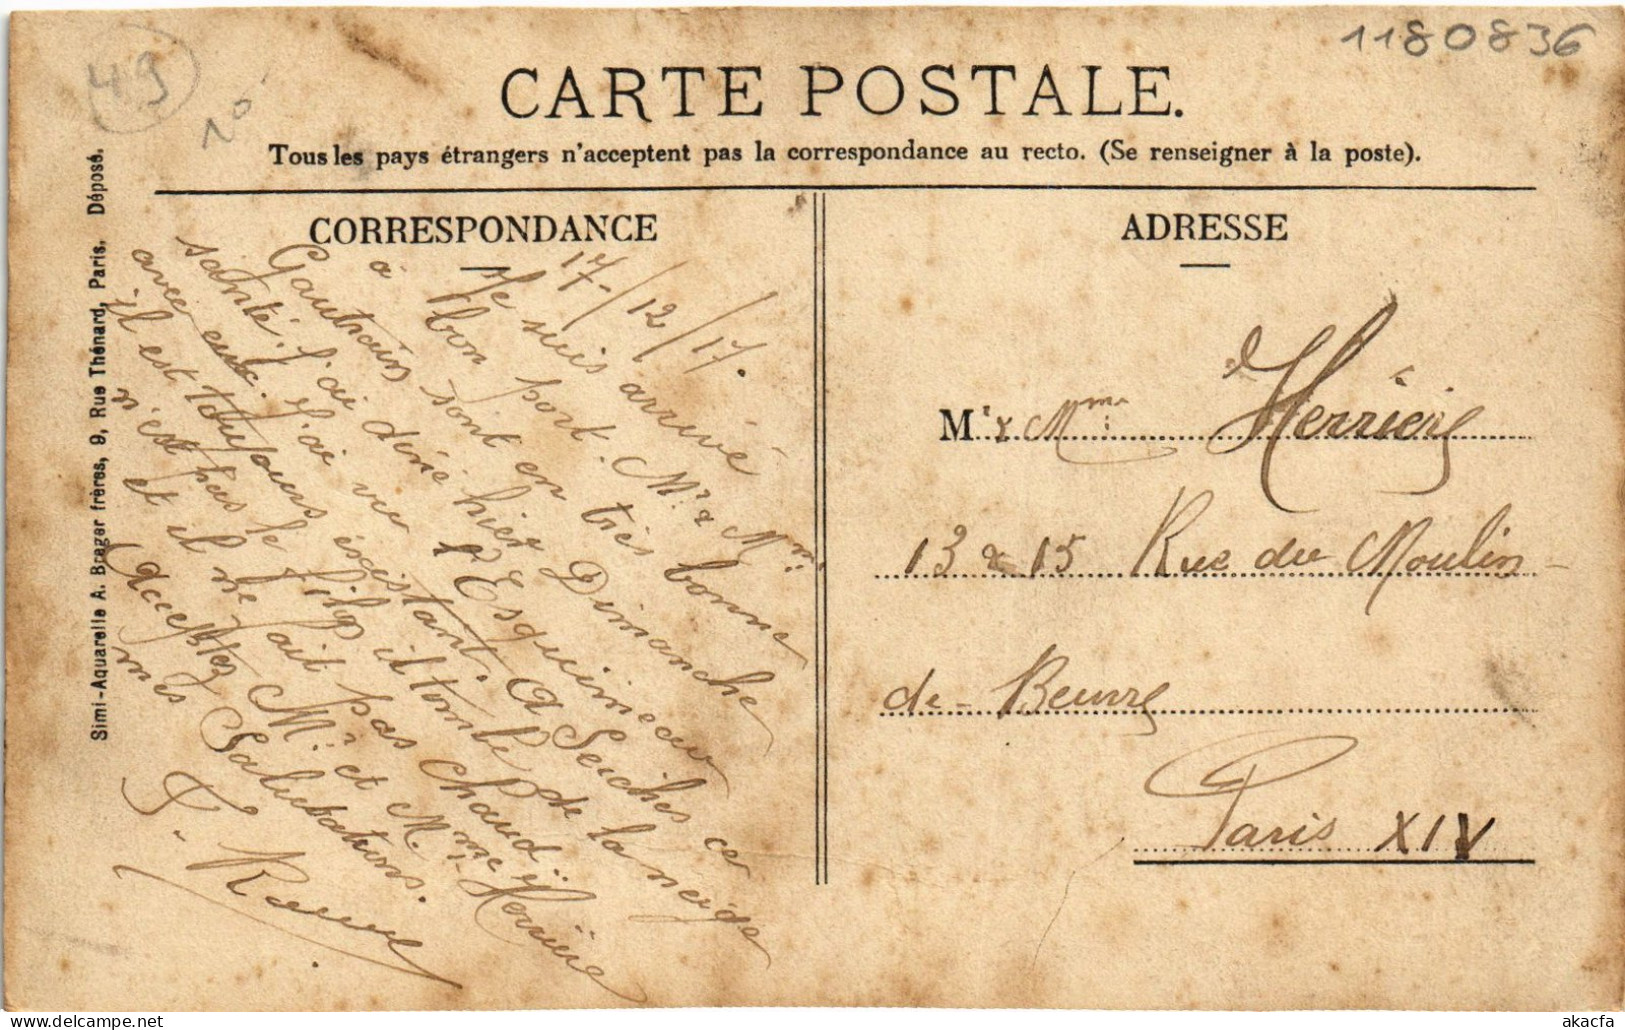 1180836
49
20
CARTE POSTALE.
Tous les pays étrangers n'acceptent pas la correspondance au recto. (Se renseigner à la poste).
CORRESPONDANCE
17-/12/17.
Je suis arrivé
à bon port. Mr & Mme
Gautrain sont en très bonne
santé. J'ai diné hier Dimanche
avec eux. J'ai vu l'Esquimeau
il est toujours existant. A Seiches ce
n'est pas le filon il tombe de la neige
et il ne fait pas chaud!!
Acceptez Mr et Mme Herrière
mes Salutations.
ADRESSE
Mr & Mme Herrière
13 & 15 Rue du Moulin-
de-Beurre
Paris XIV
Simi-Aquarelle A. Breger frères, 9, Rue Thénard, Paris. Déposé.
akacfa